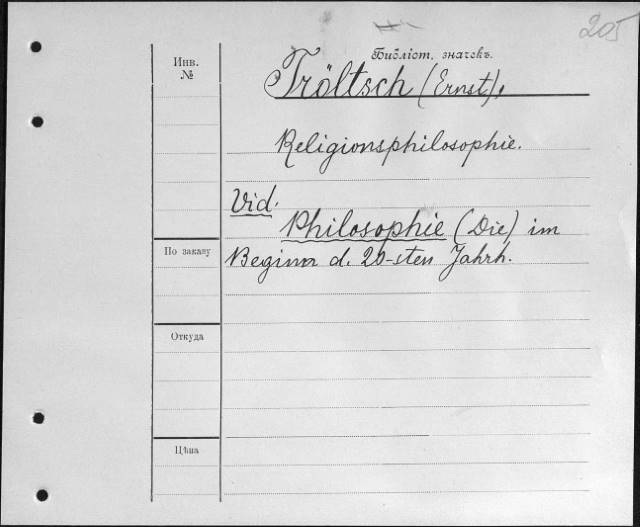 205
Библіот. значекъ.
Инв.
№
Tröltsch (Ernst),
Religionsphilosophie.
Vid.
Philosophie (Die) im
Beginn d. 20-sten Jahrh.
По заказу
Откуда
Цѣна